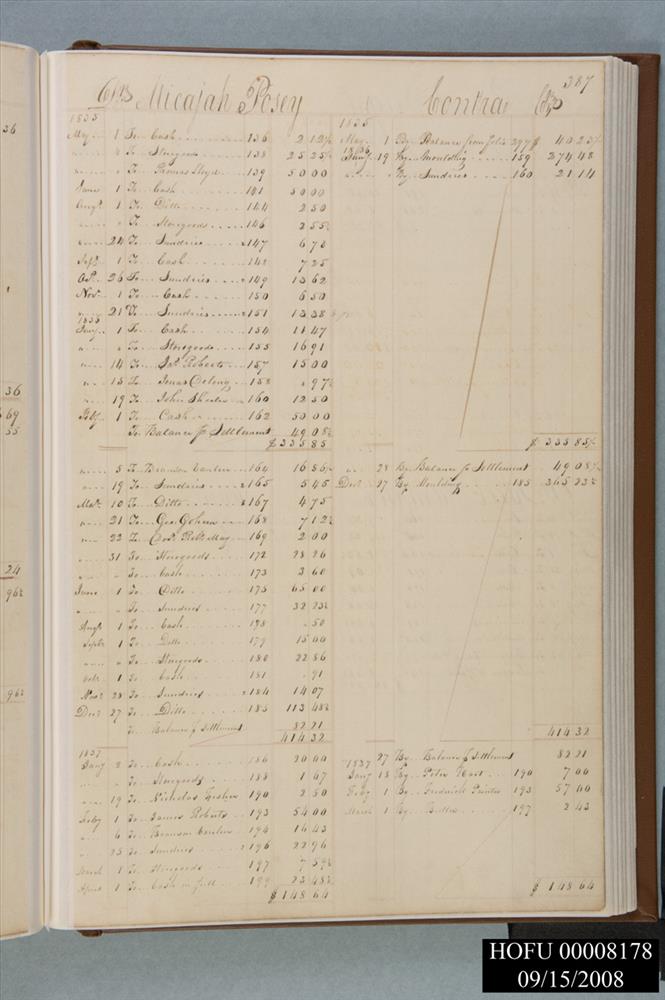 36
36
69
55
24
96½
96½
387
Drs Micajah Posey Contra Crs
1835
May 1 To Cash 136 2 12½
" " To Storegoods 138 25 25
" " To Thomas Lloyd 139 50 00
June 1 To Cash 141 50 00
Augt 1 To Ditto 144 2 50
" " To Storegoods 146 2 55
" 24 To Sundries 147 6 7
Sept 1 To Cash 148 7 25
Oct 26 To Sundries 149 13 62
Nov 1 To Cash 150 6 50
" 21 To Sundries 151 13 38
Jany 1 To Cash 154 11 47
" " To Storegoods 155 16 91
" 14 To Jas Roberts 157 15 00
" 15 To 158 " 97½
" 19 To John 160 12 50
Feby 1 To Cash 162 50 00
To Balance pr Settlement 49 08½
$ 335 85
" 5 To 164 16 56
" 19 To Sundries 165 5 45
Mar 10 To Ditto 167 4 75
" 21 To Geo 168 7 12½
" 22 To Robt May 169 2 00
" 31 To Storegoods 172 28 26
" " To Cash 173 3 60
June 1 To Ditto 175 65 00
" " To Sundries 177 32 23½
Augt 1 To Cash 178 " 50
Septr 1 To Ditto 179 15 00
" " To Storegoods 180 22 86
Octr 1 To Cash 181 " 91
Novr 28 To Sundries 184 14 07
Decr 27 To Ditto 185 113 48½
To Balance pr Settlement 82 21
414 32
1837
Jany 2 To Cash 186 20 00
" " To Storegoods 188 1 67
" 19 To Nicholas 190 2 50
Feby 1 To James Roberts 193 54 00
" 6 To 194 16 43
" 25 To Sundries 196 22 96
March 1 To Storegoods 197 7 59½
April 1 To Cash in full 199 23 48½
$ 148 64
1835
May 1 By Balance from folio 297 $ 40 23
1836
Jany 19 By Moulding 159 274 48
" " By Sundries 160 21 14
$ 335 85
" 28 By Balance pr Settlement 49 08
Decr 27 By Moulding 185 365 23½
414 32
27 By Balance pr Settlement 82 21
1837
Jany 18 By Peter Hart 190 7 00
Feby 1 By Frederick Painter 193 57 00
March 1 By Butter 197 2 43
$ 148 64
HOFU 00008178
09/15/2008